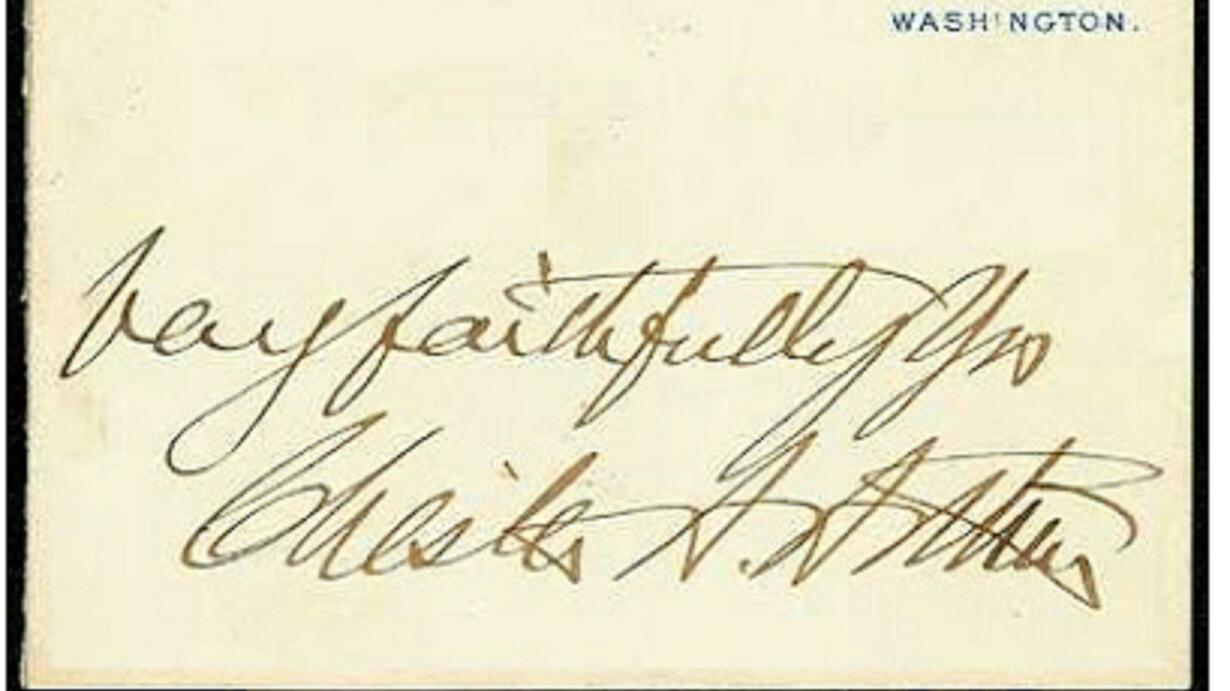 WASHINGTON.
Very faithfully Yrs
Chester A. Arthur